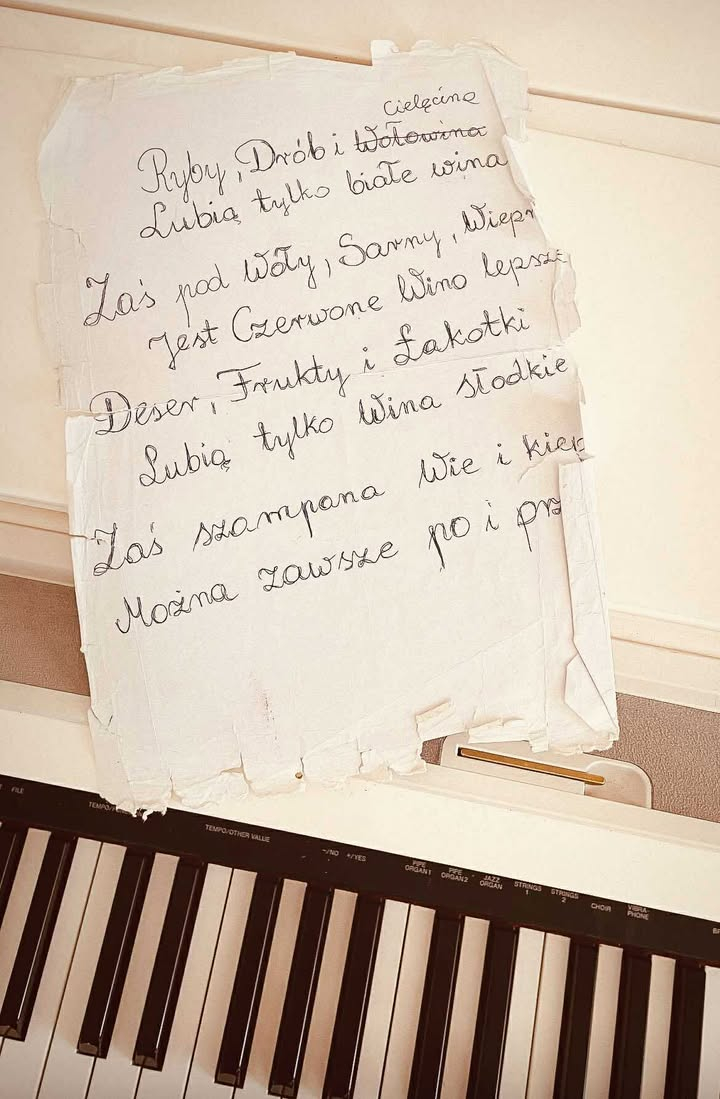 Cielęcina
Ryby, Drób i Wołowina
Lubią tylko białe wina
Zaś pod Woły, Sarny, Wiepr
Jest Czerwone Wino lepsze
Deser, Frukty i Łakotki
Lubią tylko Wina słodkie
Zaś szampana Wie i kiep
Można zawsze po i prz
FILE
TEMPO/OTHER VALUE
-/NO +/YES
PIPE ORGAN1
PIPE ORGAN2
JAZZ ORGAN
STRINGS 1
STRINGS 2
CHOIR
VIBRA-PHONE